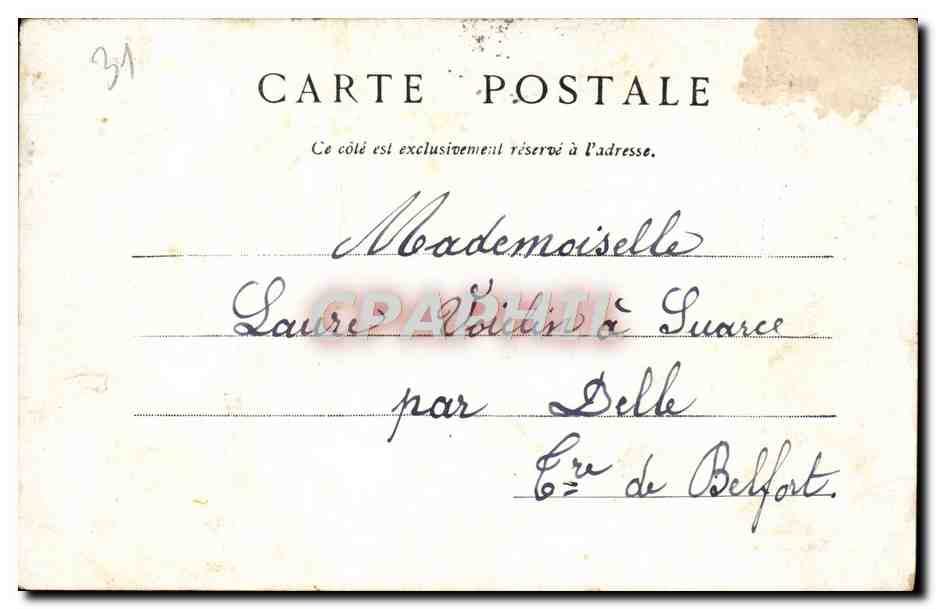 31
CARTE POSTALE
Ce côté est exclusivement réservé à l'adresse.
Mademoiselle
Laure Voisin à Suarce
CPAPHIL
par Delle
Tre de Belfort.